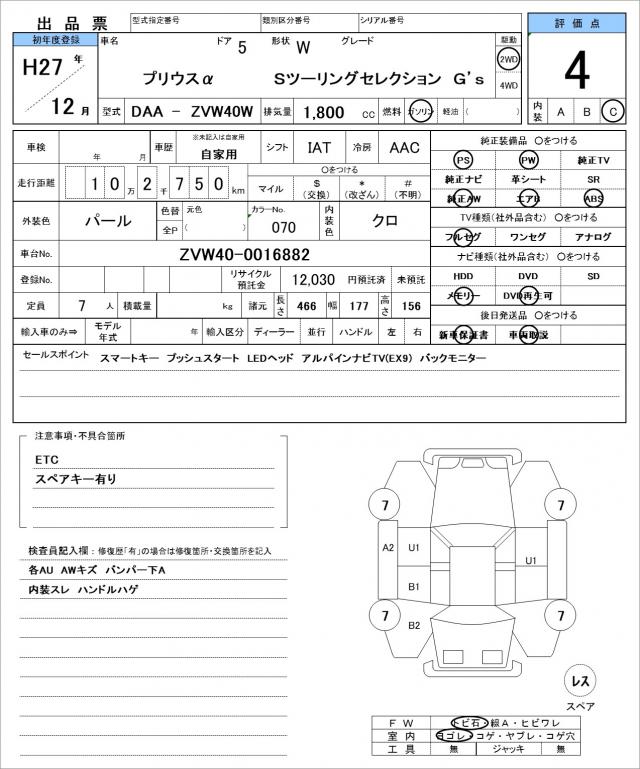 出品票 型式指定番号 類別区分番号 シリアル番号 評価点
初年度登録 車名 ドア 5 形状 W グレード 駆動
H27 年 プリウスα Sツーリングセレクション G's 2WD 4
4WD
12 月 型式 DAA － ZVW40W 排気量 1,800 cc 燃料 ガソリン 軽油 ( ) 内装 A B C
車検 年 月 車歴 ※未記入は自家用 自家用 シフト IAT 冷房 AAC 純正装備品 〇をつける
PS PW 純正TV
走行距離 10 万 2 千 750 km 〇をつける マイル $ (交換) * (改ざん) # (不明) 純正ナビ 革シート SR
純正AW エアB ABS
外装色 パール 色替 元色 カラーNo. 内装色 クロ TV種類(社外品含む) 〇をつける
全P ( ) 070 フルセグ ワンセグ アナログ
車台No. ZVW40-0016882 ナビ種類(社外品含む) 〇をつける
登録No. リサイクル預託金 12,030 円預託済 未預託 HDD DVD SD
メモリー DVD再生可
定員 7 人 積載量 kg 諸元 長さ 466 幅 177 高さ 156 後日発送品 〇をつける
輸入車のみ⇒ モデル年式 年 輸入区分 ディーラー 並行 ハンドル 左 右 新車保証書 車両取説
セールスポイント スマートキー プッシュスタート LEDヘッド アルパインナビTV(EX9) バックモニター
注意事項・不具合箇所
ETC
スペアキー有り
検査員記入欄：修復歴「有」の場合は修復箇所・交換箇所を記入
各AU AWキズ バンパー下A
内装スレ ハンドルハゲ
7 7
A2 U1 U1
B1
7 B2 7
レス
スペア
FW トビ石・線A・ヒビワレ
室内 ヨゴレ・コゲ・ヤブレ・コゲ穴
工具 無 ジャッキ 無